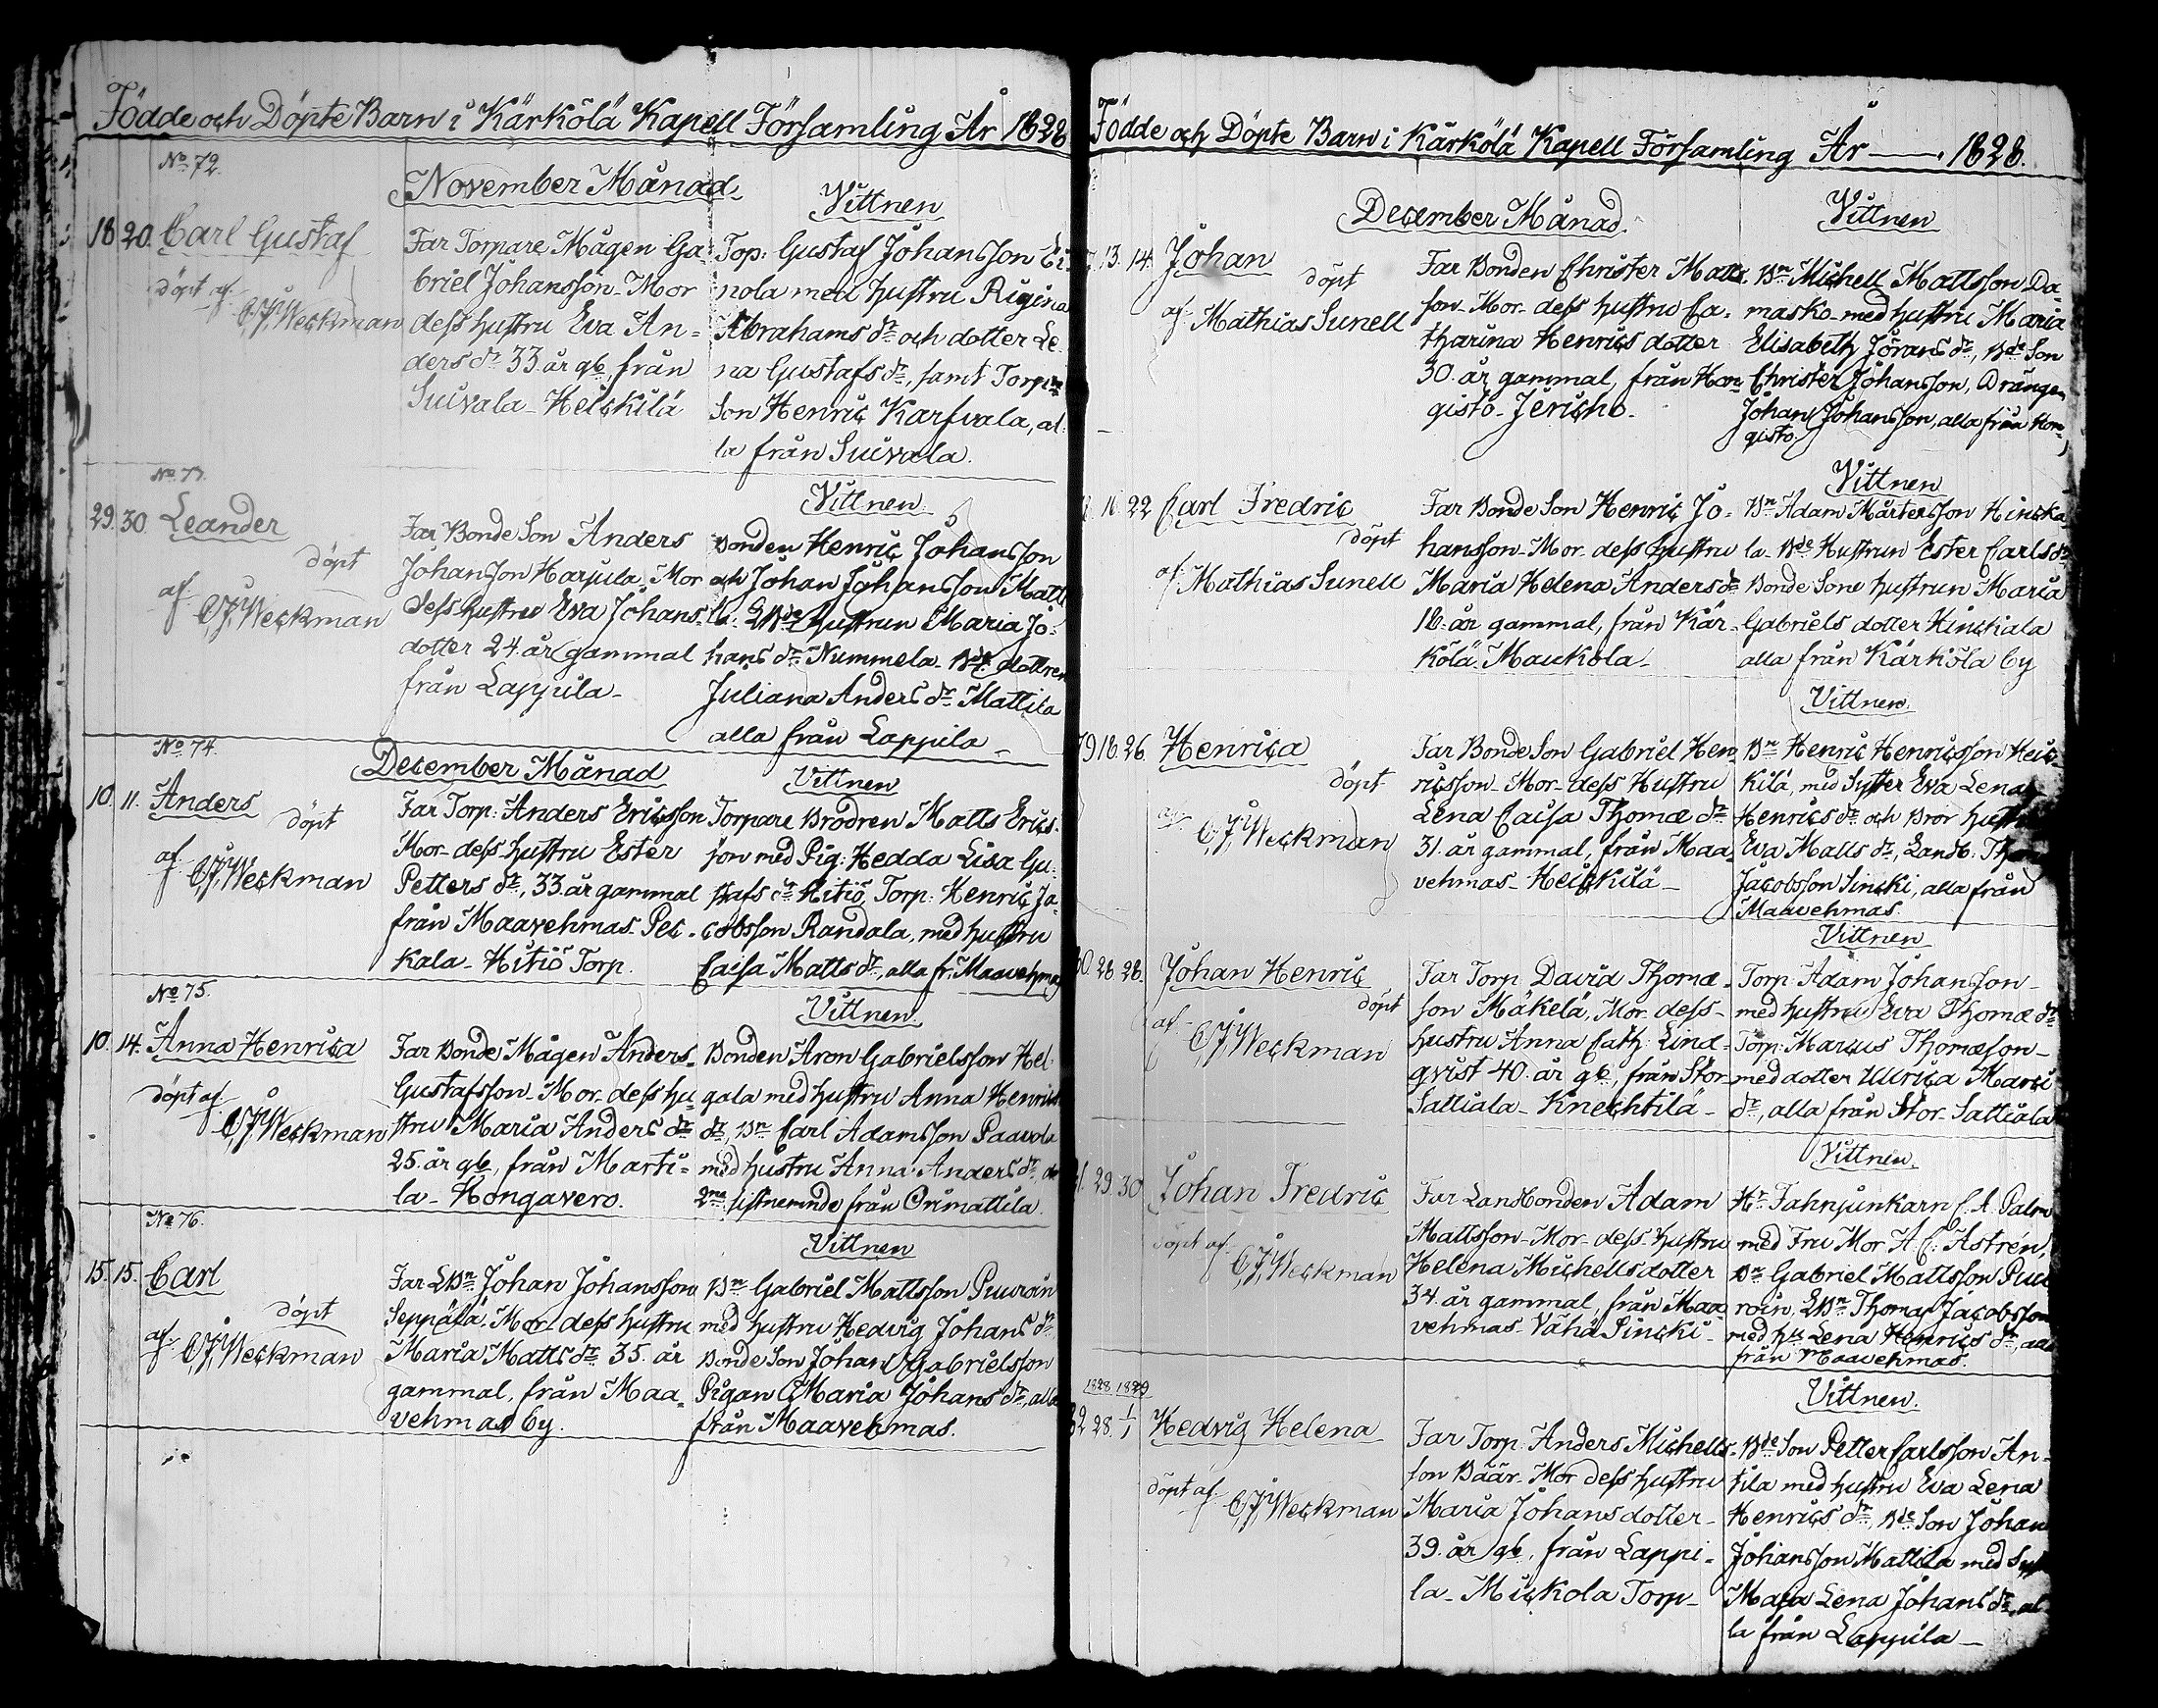 Födde och Döpte Barn i Kärkölä Kapell Församling År 1828
No 72.
November Månad
Vittnen
18 20. Carl Gustaf
döpt af
C.J. Weckman
Far Torpare Mågen Ga-
briel Johansson Mor
dess hustru Eva An-
ders dr 33 år gb, från
Suivala Heickilä
Top: Gustaf Johansson Ei-
nola med hustru Rigina
Abrahams dr och dotter Le-
na Gustafs dr, samt Torp
Son Henric Karfvala, al-
la från Suivala.
No 73.
Vittnen
29. 30. Leander
döpt
af
C.J. Weckman
Far Bonde Son Anders
Johansson Harjula, Mor
dess hustru Eva Johans
dotter 24 år gammal
från Lappila
Bonden Henric Johansson
och Johan Johansson Matti
la. hustrun Maria Jo-
hans dr Nummela. Bde dottren
Juliana Anders dr Mattila
alla från Lappila
No 74.
December Månad
Vittnen
10. 11. Anders
döpt
af
C.J. Weckman
Far Torp: Anders Ericsson
Mor dess hustru Ester
Petters dr, 33 år gammal
från Maavehmas Pec-
kala Hitiö Torp.
Torpare Brodren Matts Erics-
son med Pig: Hedda Lisa Gu-
stafs dr Hitiö, Torp: Henric Ja-
cobsson Randala, med hustru
Caisa Matts dr, alla fr: Maavehmas
No 75.
Vittnen
10. 14. Anna Henrica
döpt af
C.J. Weckman
Far Bonde Mågen Anders
Gustafsson Mor dess hu-
stru Maria Anders dr
25 år gb, från Marti-
la Hongavero.
Bonden Aron Gabrielsson Hel-
gala med hustru Anna Henrics
dr, Bn Carl Adamsson Paavola
med hustru Anna Anders dr de
2ne sistnemnde från Orimattila.
No 76.
Vittnen
15. 15. Carl
döpt
af
C.J. Weckman
Far LBn Johan Johansson
Seppälä, Mor dess hustru
Maria Matts dr 35 år
gammal, från Maa-
vehmas by.
Bn Gabriel Mattsson Puuroin
med hustru Hedvig Johans dr
Bonde Son Johan Gabrielsson
Pigan Maria Johans dr, alla
från Maavehmas.
Födde och Döpte Barn i Kärkölä Kapell Församling År 1828.
December Månad.
Vittnen
13. 14. Johan
döpt
af Mathias Sunell
Far Bonden Christer Matts
son Mor dess hustru Ca-
tharina Henrics dotter
30 år gammal, från Hon-
gisto Jericho.
Bn Michell Mattsson Da-
masko med hustru Maria
Elisabeth Jörans dr, Bde Son
Christer Johansson, Drängen
Johan Johansson, alla från Hon-
gisto
Vittnen
16. 22 Carl Fredric
döpt
af Mathias Sunell
Far Bonde Son Henric Jo-
hansson Mor dess hustru
Maria Helena Anders dr
18 år gammal, från Kär-
kölä Mauckola
Bn Adam Mårtensson Hincka
la Bde Hustrun Ester Carls dr
Bonde Sone hustrun Maria
Gabriels dotter Hinckiala
alla från Kärkölä by
Vittnen.
79 18. 26. Henrica
döpt
af
C.J. Weckman
Far Bonde Son Gabriel Hen-
ricsson Mor dess Hustru
Lena Caisa Thomæ dr
31 år gammal, från Maa-
vehmas Heickilä
Bn Henric Henricsson Heic-
kilä, med Syster Eva Lena
Henrics dr och Bror hustru
Eva Matts dr, Landb. Thom
Jacobsson Sincki, alla från
Maavehmas.
Vittnen
80. 28 28. Johan Henric
döpt
af
C.J. Weckman
Far Torp David Thomæ-
son Mäkelä, Mor dess
hustru Anna Cath: Lind-
qvist 40 år gb, från Stor
Sattiala Knechtilä
Torp: Adam Johansson
med hustru Eva Thomæ dr
Torp: Marcus Thomæson
med dotter Ulrica Marci
dr, alla från Stor Sattiala
Vittnen.
81. 29. 30 Johan Fredric
döpt af
C.J. Weckman
Far Landbonden Adam
Mattsson Mor dess hustru
Helena Michellsdotter
34 år gammal, från Maa
vehmas Vähä Sincki
Hr Fahnjunkarn C. A. Palm
med Fru Mor A. C. Astrén,
Bn Gabriel Mattsson Puu
roin, LBn Thomas Jacobsson
med hu Lena Henrics dr, alla
från Maavehmas.
1828 1829
Vittnen.
82 28. 1/1 Hedvig Helena
döpt af
C.J. Weckman
Far Torp: Anders Michells-
son Bäär Mor dess hustru
Maria Johans dotter
39 år gb, från Lappi-
la Mickola Torp
Bde Son Petter Carlsson An-
tila med hustru Eva Lena
Henrics dr, Bde Son Johan
Johansson Mattila med
Maja Lena Johans dr, al-
la från Lappila